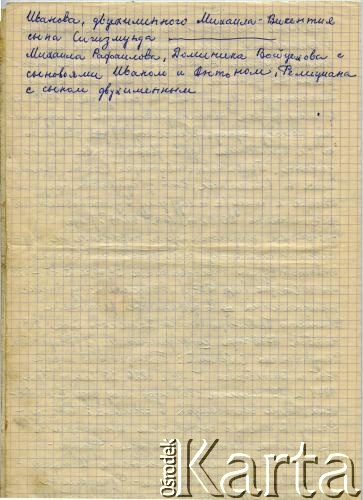 Иванова, двухименного Михаила-Висентия
сына Сигизмунда
Михаила Рафаилова, Доминика Войцехова с
сыновьями Иваном и Антоном, Фелициана
с сыном двухименным
Ośrodek
Karta